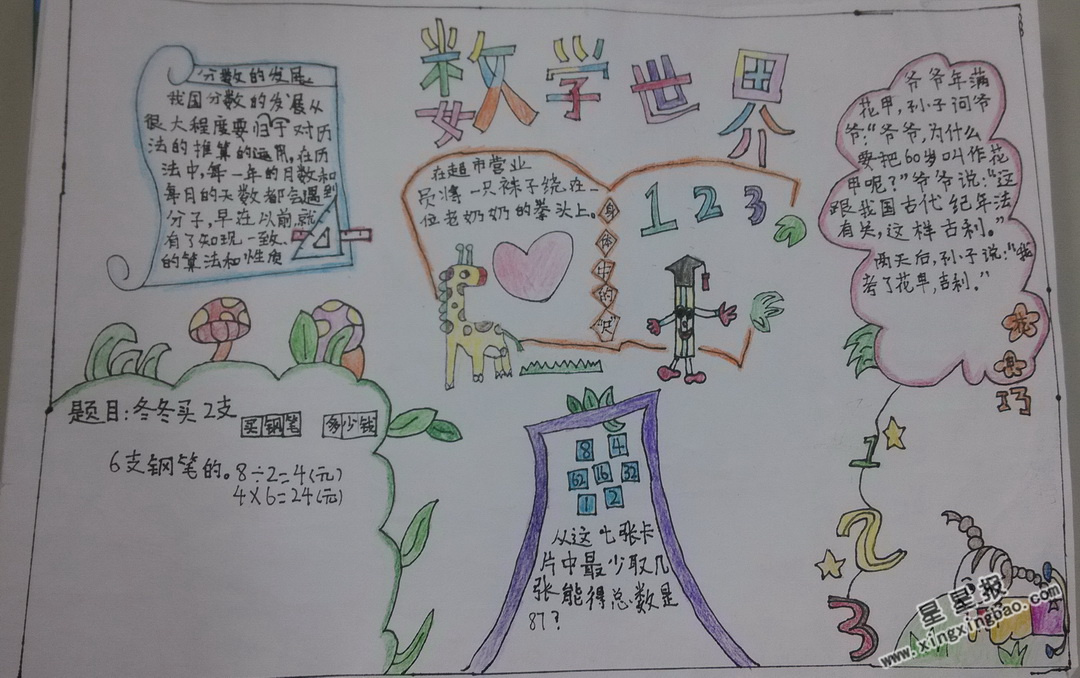 数学世界
分数的发展
我国分数的发展从
很大程度要归于对历
法的推算的运用,在历
法中,每一年的月数和
每月的天数都会遇到
分子,早在以前就
有了和现一致、
的算法和性质
在超市营业
员将一只袜子绕在一
位老奶奶的拳头上。
身体中的"尺"
1 2 3
爷爷年满
花甲,孙子问爷
爷:"爷爷,为什么
要把60岁叫作花
甲呢?"爷爷说:"这
跟我国古代纪年法
有关,这样吉利。"
两天后,孙子说:"我
考了花甲,吉利。"
题目:冬冬买2支
买钢笔 多少钱
6支钢笔的。8÷2=4(元)
4×6=24(元)
8 4
62 16 32
1 2
从这七张卡
片中最少取几
张能得总数是
87?
1
2
3
星星报
www.xingxingbao.com